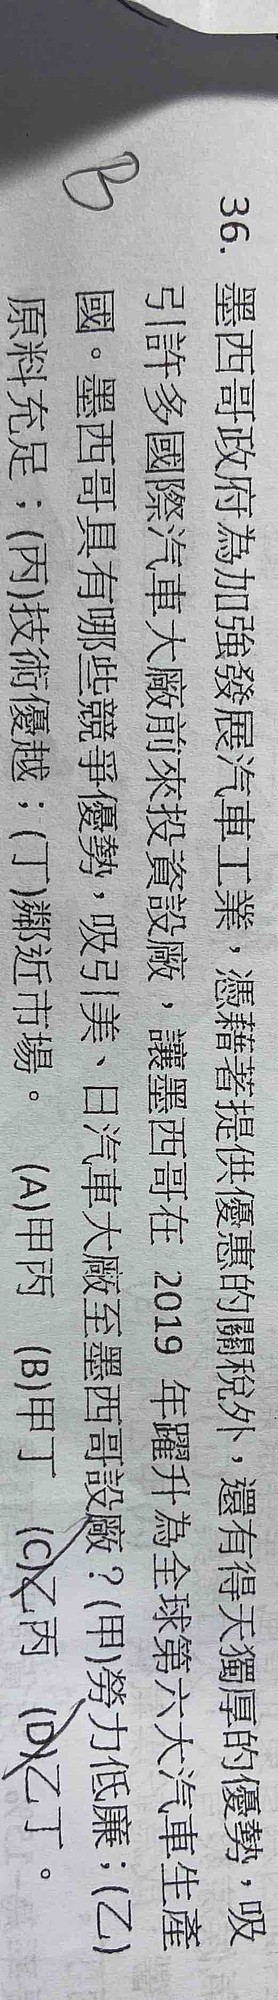 36. 墨西哥政府為加強發展汽車工業，憑藉著提供優惠的關稅外，還有得天獨厚的優勢，吸
引許多國際汽車大廠前來投資設廠，讓墨西哥在 2019 年躍升為全球第六大汽車生產
B 國。墨西哥具有哪些競爭優勢，吸引美、日汽車大廠至墨西哥設廠？(甲)勞力低廉；(乙)
原料充足；(丙)技術優越；(丁)鄰近市場。 (A)甲丙 (B)甲丁 (C)乙丙 (D)乙丁。